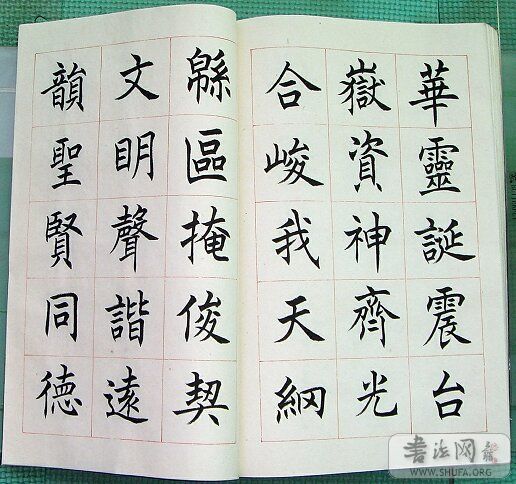 華靈誕震台
嶽資神齊光
合峻我天網
緜區掩俊契
文明聲諧遠
韻聖賢同德
书法网
WWW.SHUFA.ORG